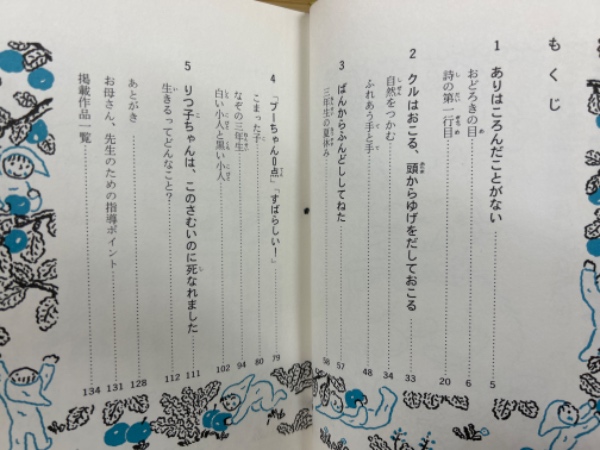 もくじ
1 ありはころんだことがない 5
おどろきの目 6
詩の第一行目 20
2 クルはおこる、頭からゆげをだしておこる 33
自然をつかむ 34
ふれあう手と手 48
3 ばんからふんどししてねた 57
三年生の夏休み 58
4 「プーちゃん0点」「すばらしい!」 79
こまった子 80
なぞの三年生 94
白い小人と黒い小人 102
5 りつ子ちゃんは、このさむいのに死なれました 111
生きるってどんなこと? 112
あとがき 128
お母さん、先生のための指導ポイント 131
掲載作品一覧 134